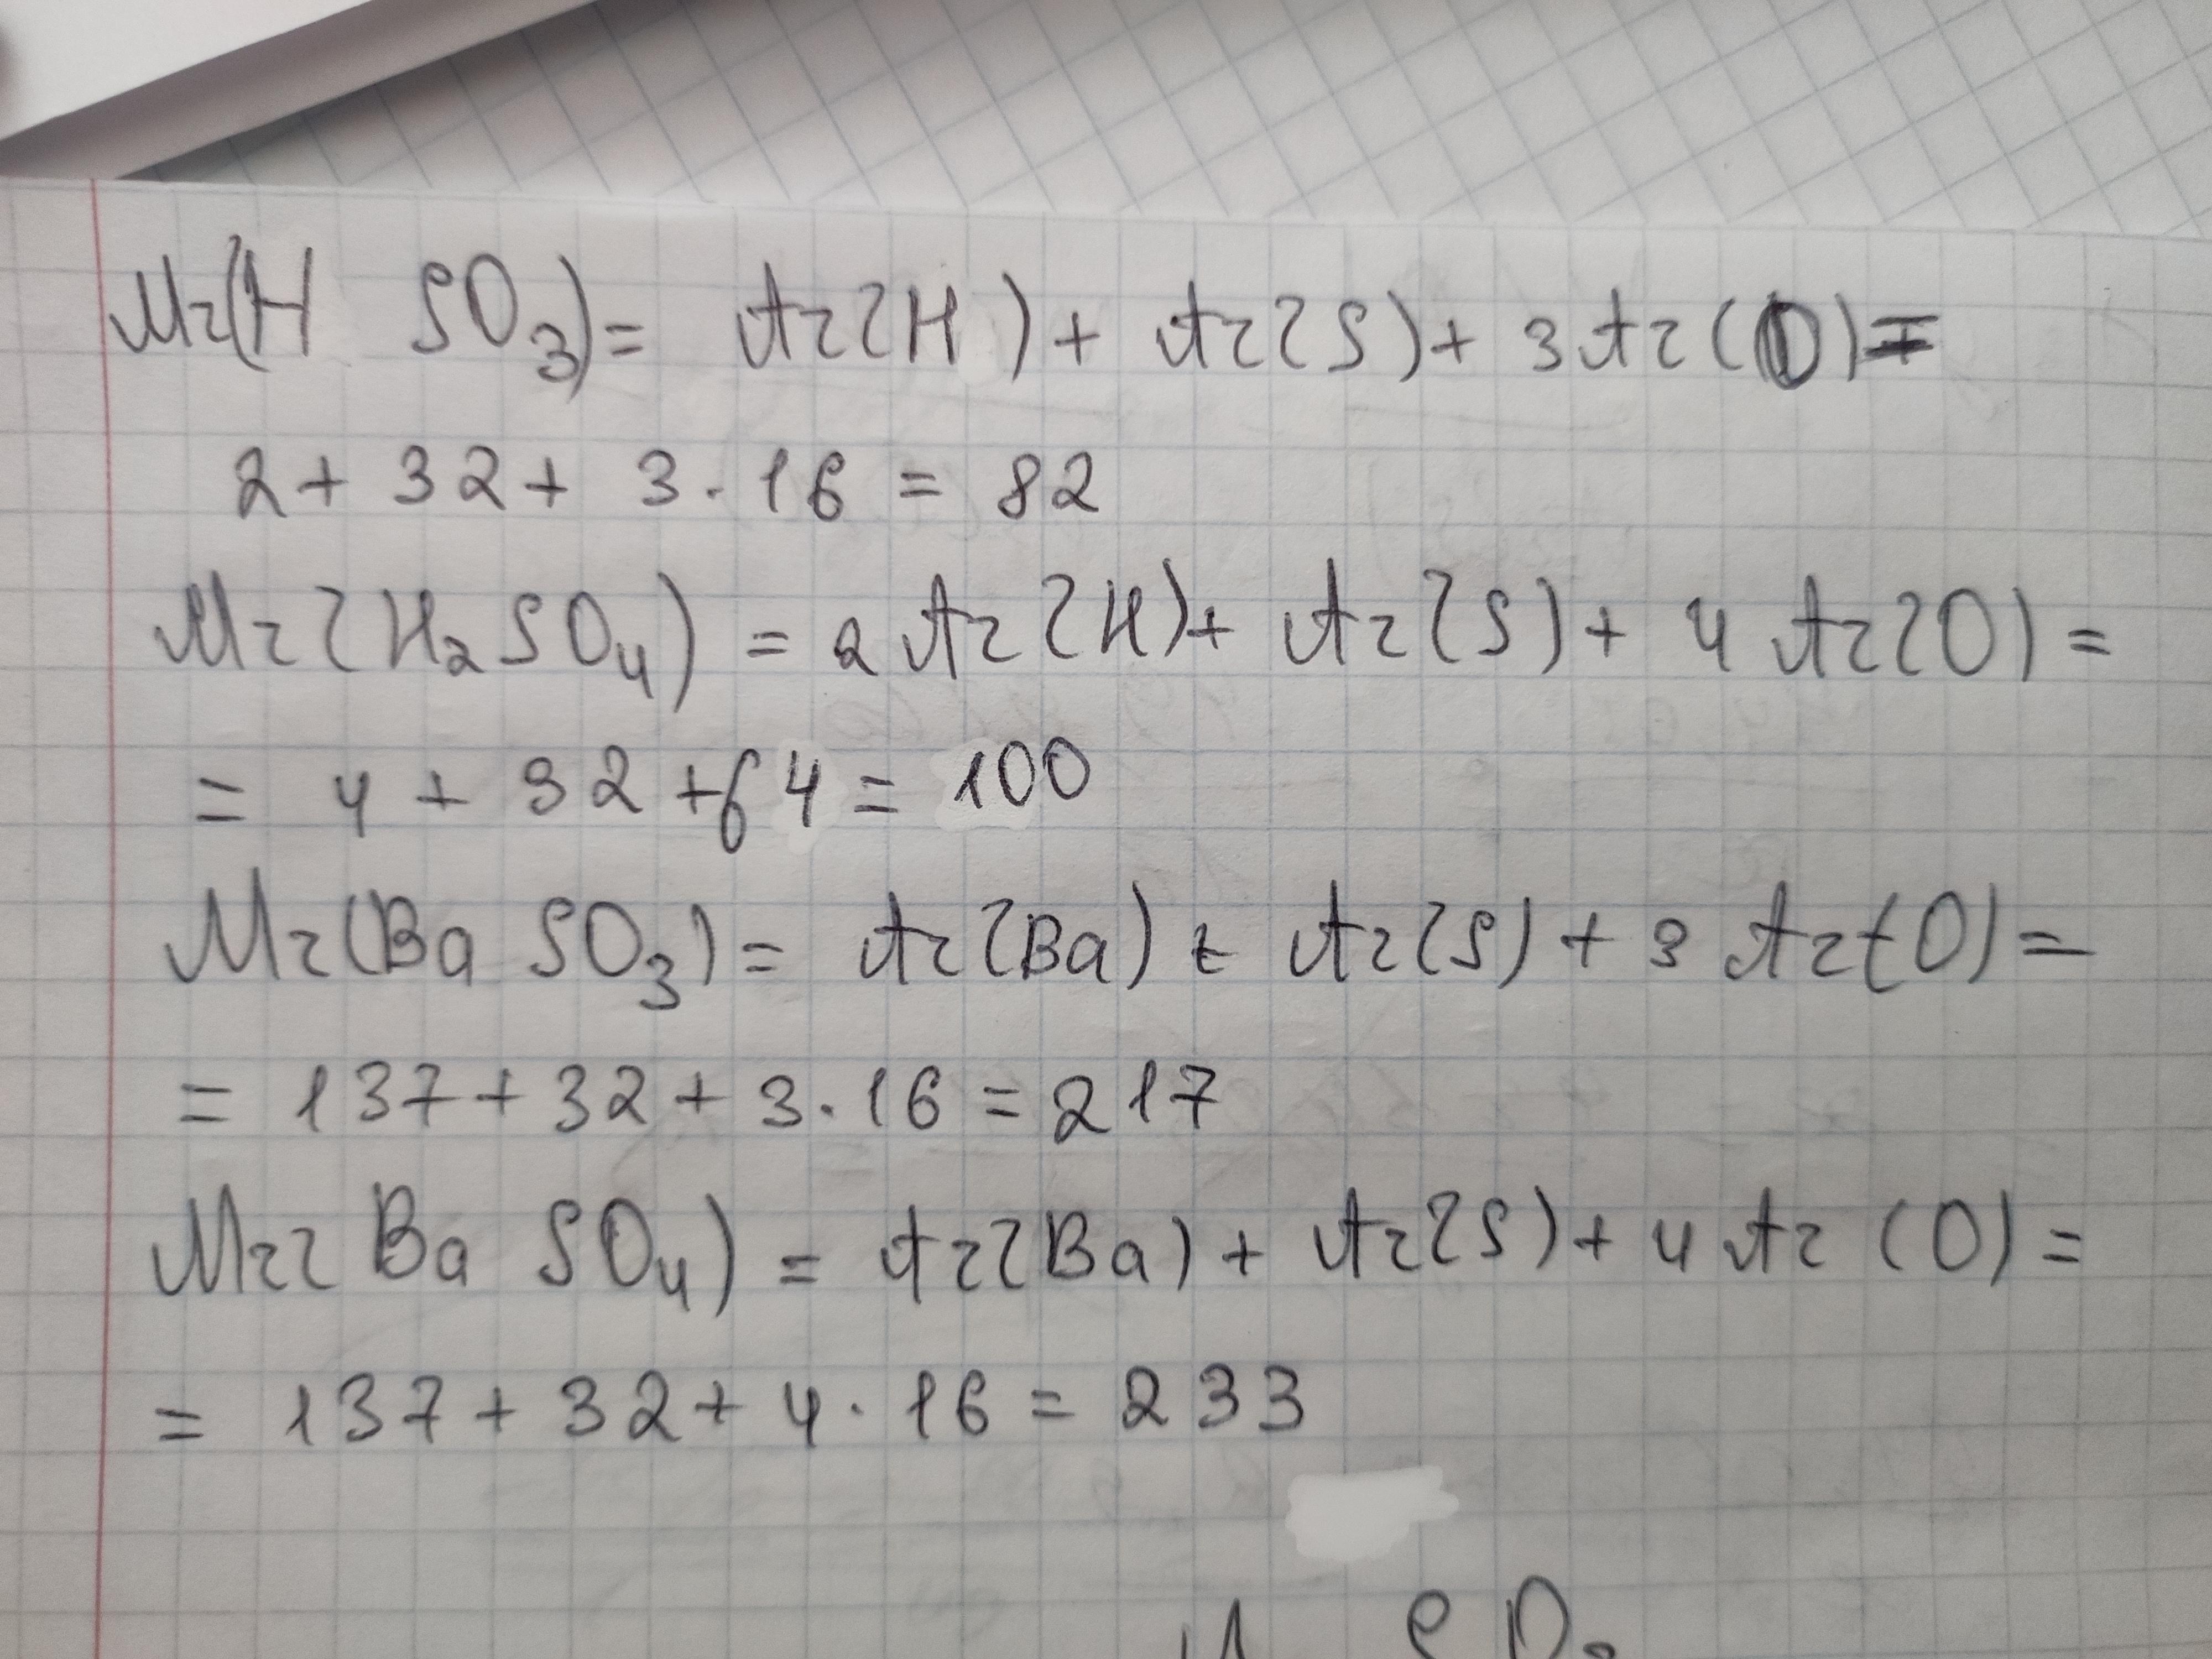 Mr(H SO₃) = Ar(H) + Ar(S) + 3Ar(O) =
2 + 32 + 3 · 16 = 82
Mr(H₂SO₄) = 2 Ar(H) + Ar(S) + 4 Ar(O) =
= 4 + 32 + 64 = 100
Mr(Ba SO₃) = Ar(Ba) + Ar(S) + 3 Ar(O) =
= 137 + 32 + 3 · 16 = 217
Mr(Ba SO₄) = Ar(Ba) + Ar(S) + 4 Ar(O) =
= 137 + 32 + 4 · 16 = 233